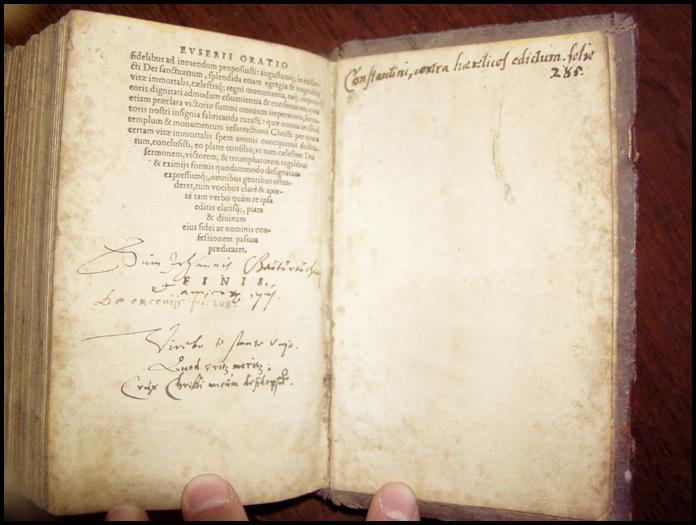 EVSEBII ORATIO
fidelibus ad intuendum proposuisti: augustumq́; in
cti Dei sanctuarium, splendida etiam egregia & magnifica
vitæ immortalis, cælestisq́; regni monumenta, eaq́; impera-
toris dignitati admodum conuenientia & consentanea, quæ
etiam præclara victoriæ summi omnium imperatoris, serua-
toris nostri insignia fabricanda curasti: quæ omnia in illud
templum & monumentum resurrectioni Christi per quam
certam vitæ immortalis spem animis concipimus dedica-
tum, conclusisti, eo plane consilio, vt tum cælestem Dei
sermonem, victorem, & triumphatorem regalibus
& eximijs formis quodammodo designatum
expressumq́;, omnibus gentibus osten-
deret, tum vocibus clarè & aper-
tè tam verbo quàm re ipsa
editis elatisq́;, piam
& diuinam
eius fidei ac nominis con-
fessionem passim
prædicaret.
Sum Johannis
FINIS.
amicor
fol: 208.
Vivebo te stante
Quod
Crux Christi mecum
Constantini, contra hæreticos edictum. folio
285.